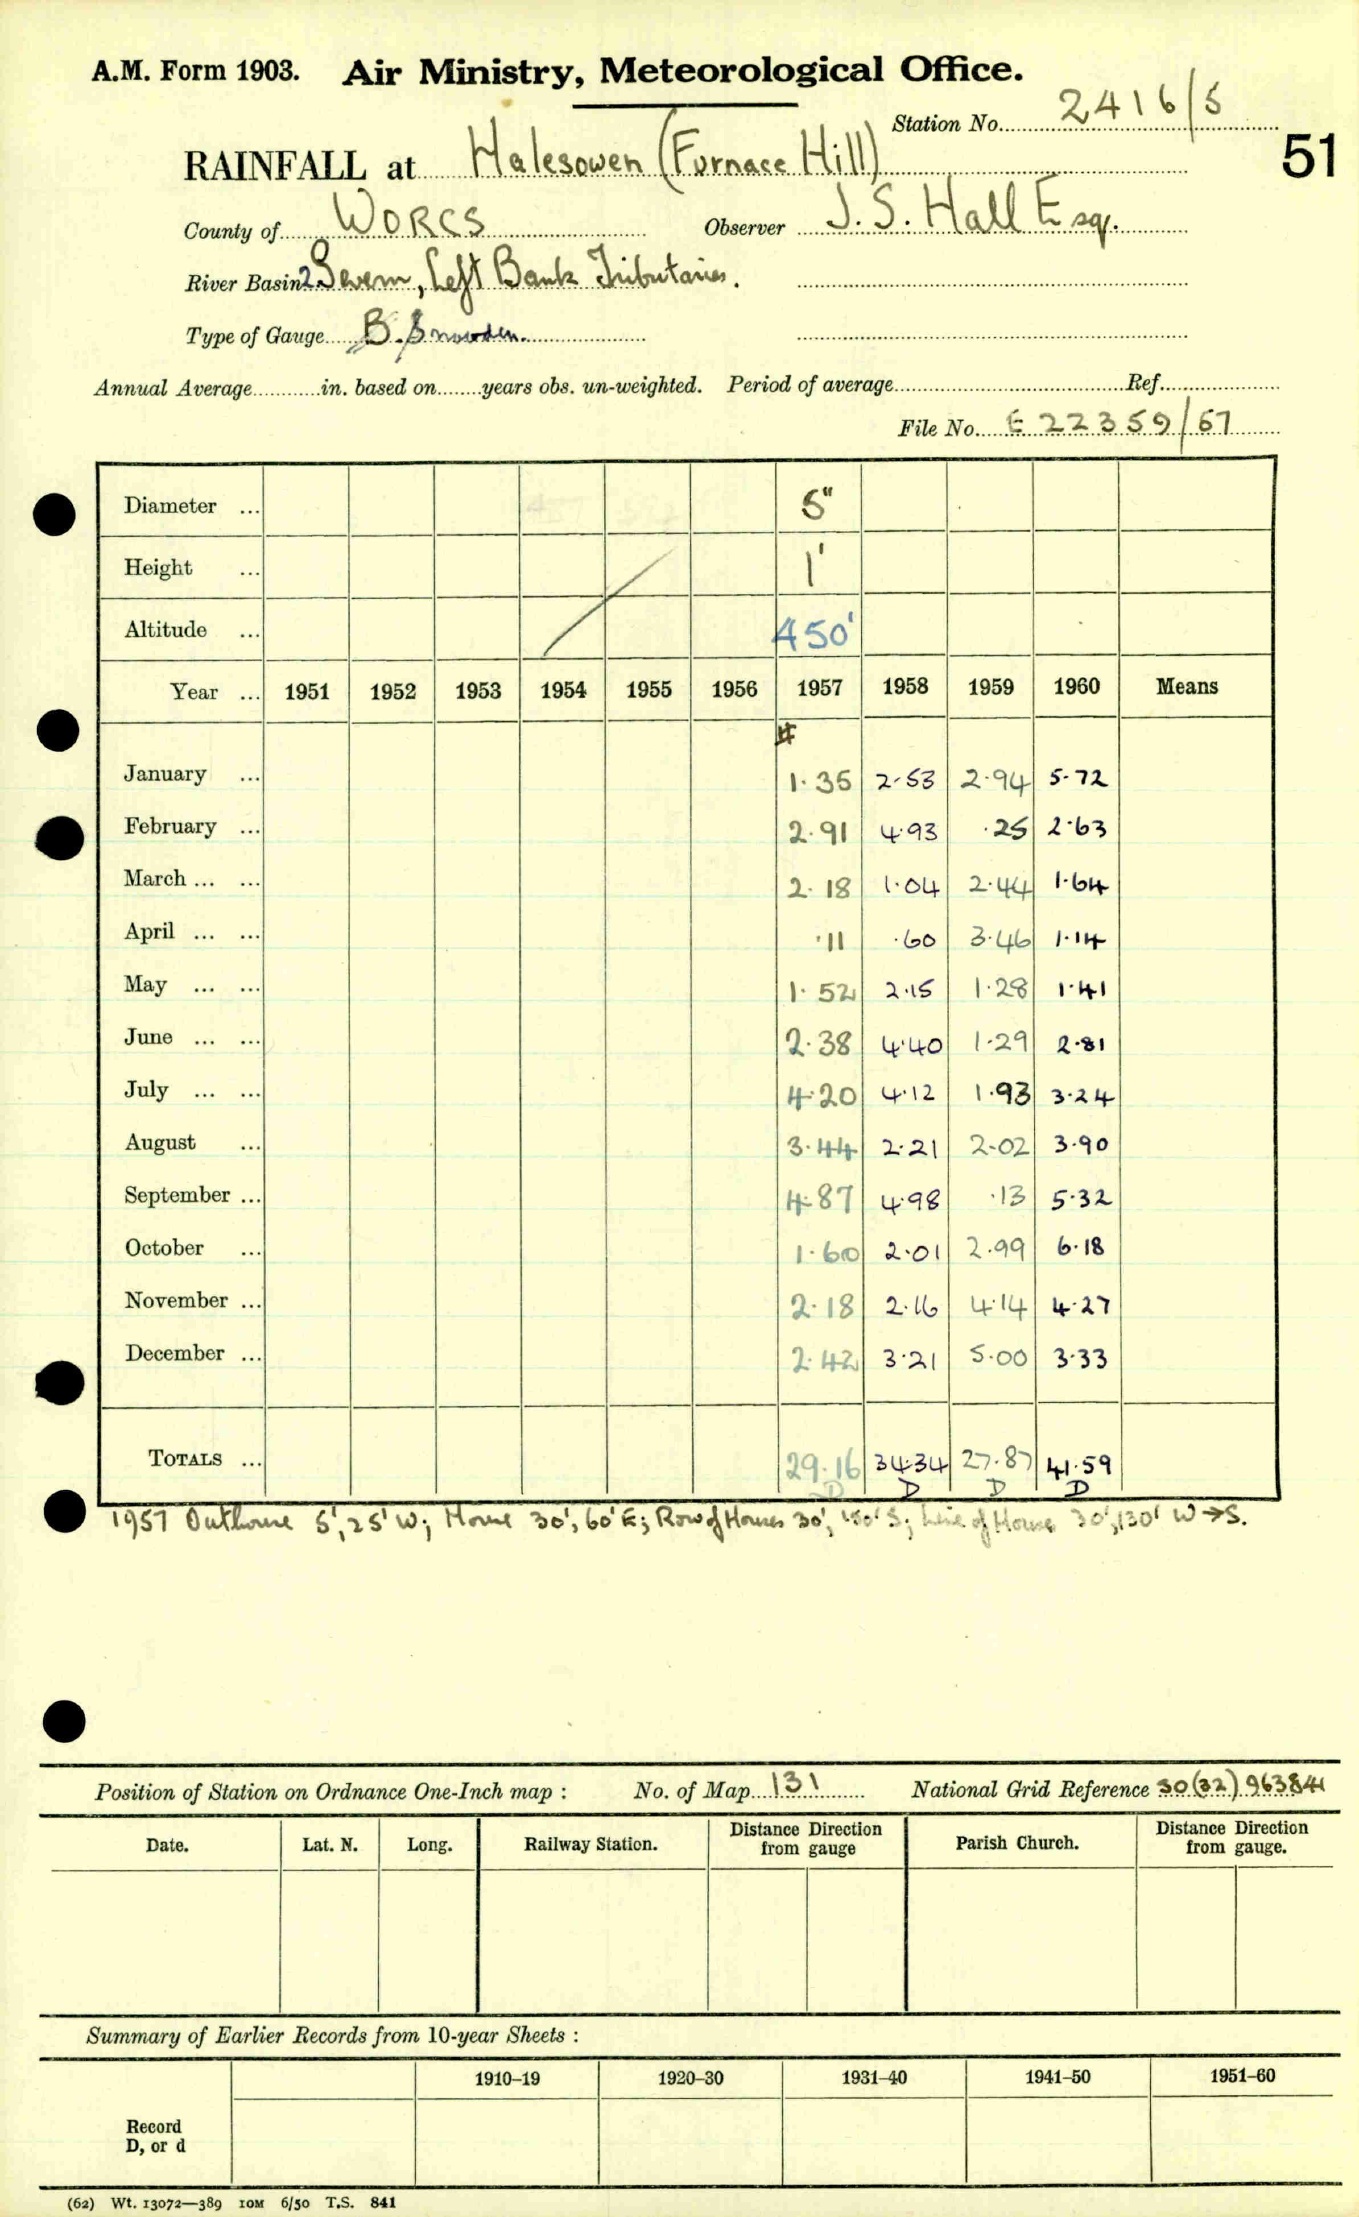 A.M. Form 1903. Air Ministry, Meteorological Office.
Station No. 2416/5
51
RAINFALL at Halesowen (Furnace Hill)
County of WORCS Observer J. S. Hall Esq.
River Basin 2 Severn, Left Bank Tributaries.
Type of Gauge B. Snowden.
Annual Average in. based on years obs. un-weighted. Period of average Ref.
File No. E 22359/57
Diameter ... 5"
Height ... 1'
Altitude ... 450'
Year ... 1951 1952 1953 1954 1955 1956 1957 1958 1959 1960 Means
#
January ... 1.35 2.53 2.94 5.72
February ... 2.91 4.93 .25 2.63
March ... ... 2.18 1.04 2.44 1.64
April ... ... .11 .60 3.46 1.14
May ... ... 1.52 2.15 1.28 1.41
June ... ... 2.38 4.40 1.29 2.81
July ... ... 4.20 4.12 1.93 3.24
August ... 3.44 2.21 2.02 3.90
September ... 4.87 4.98 .13 5.32
October ... 1.60 2.01 2.99 6.18
November ... 2.18 2.16 4.14 4.27
December ... 2.42 3.21 5.00 3.33
TOTALS ... 29.16 34.34 27.87 41.59
D D D D
1957 Outhouse 5', 25' W; House 30', 60' E; Row of Houses 30', 150' S; Line of House 30', 130' W→S.
Position of Station on Ordnance One-Inch map : No. of Map 131 National Grid Reference 30(32) 963841
Date. Lat. N. Long. Railway Station. Distance Direction from gauge Parish Church. Distance Direction from gauge.
Summary of Earlier Records from 10-year Sheets :
1910–19 1920–30 1931–40 1941–50 1951–60
Record
D, or d
(62) Wt. 13072—389 10M 6/50 T.S. 841